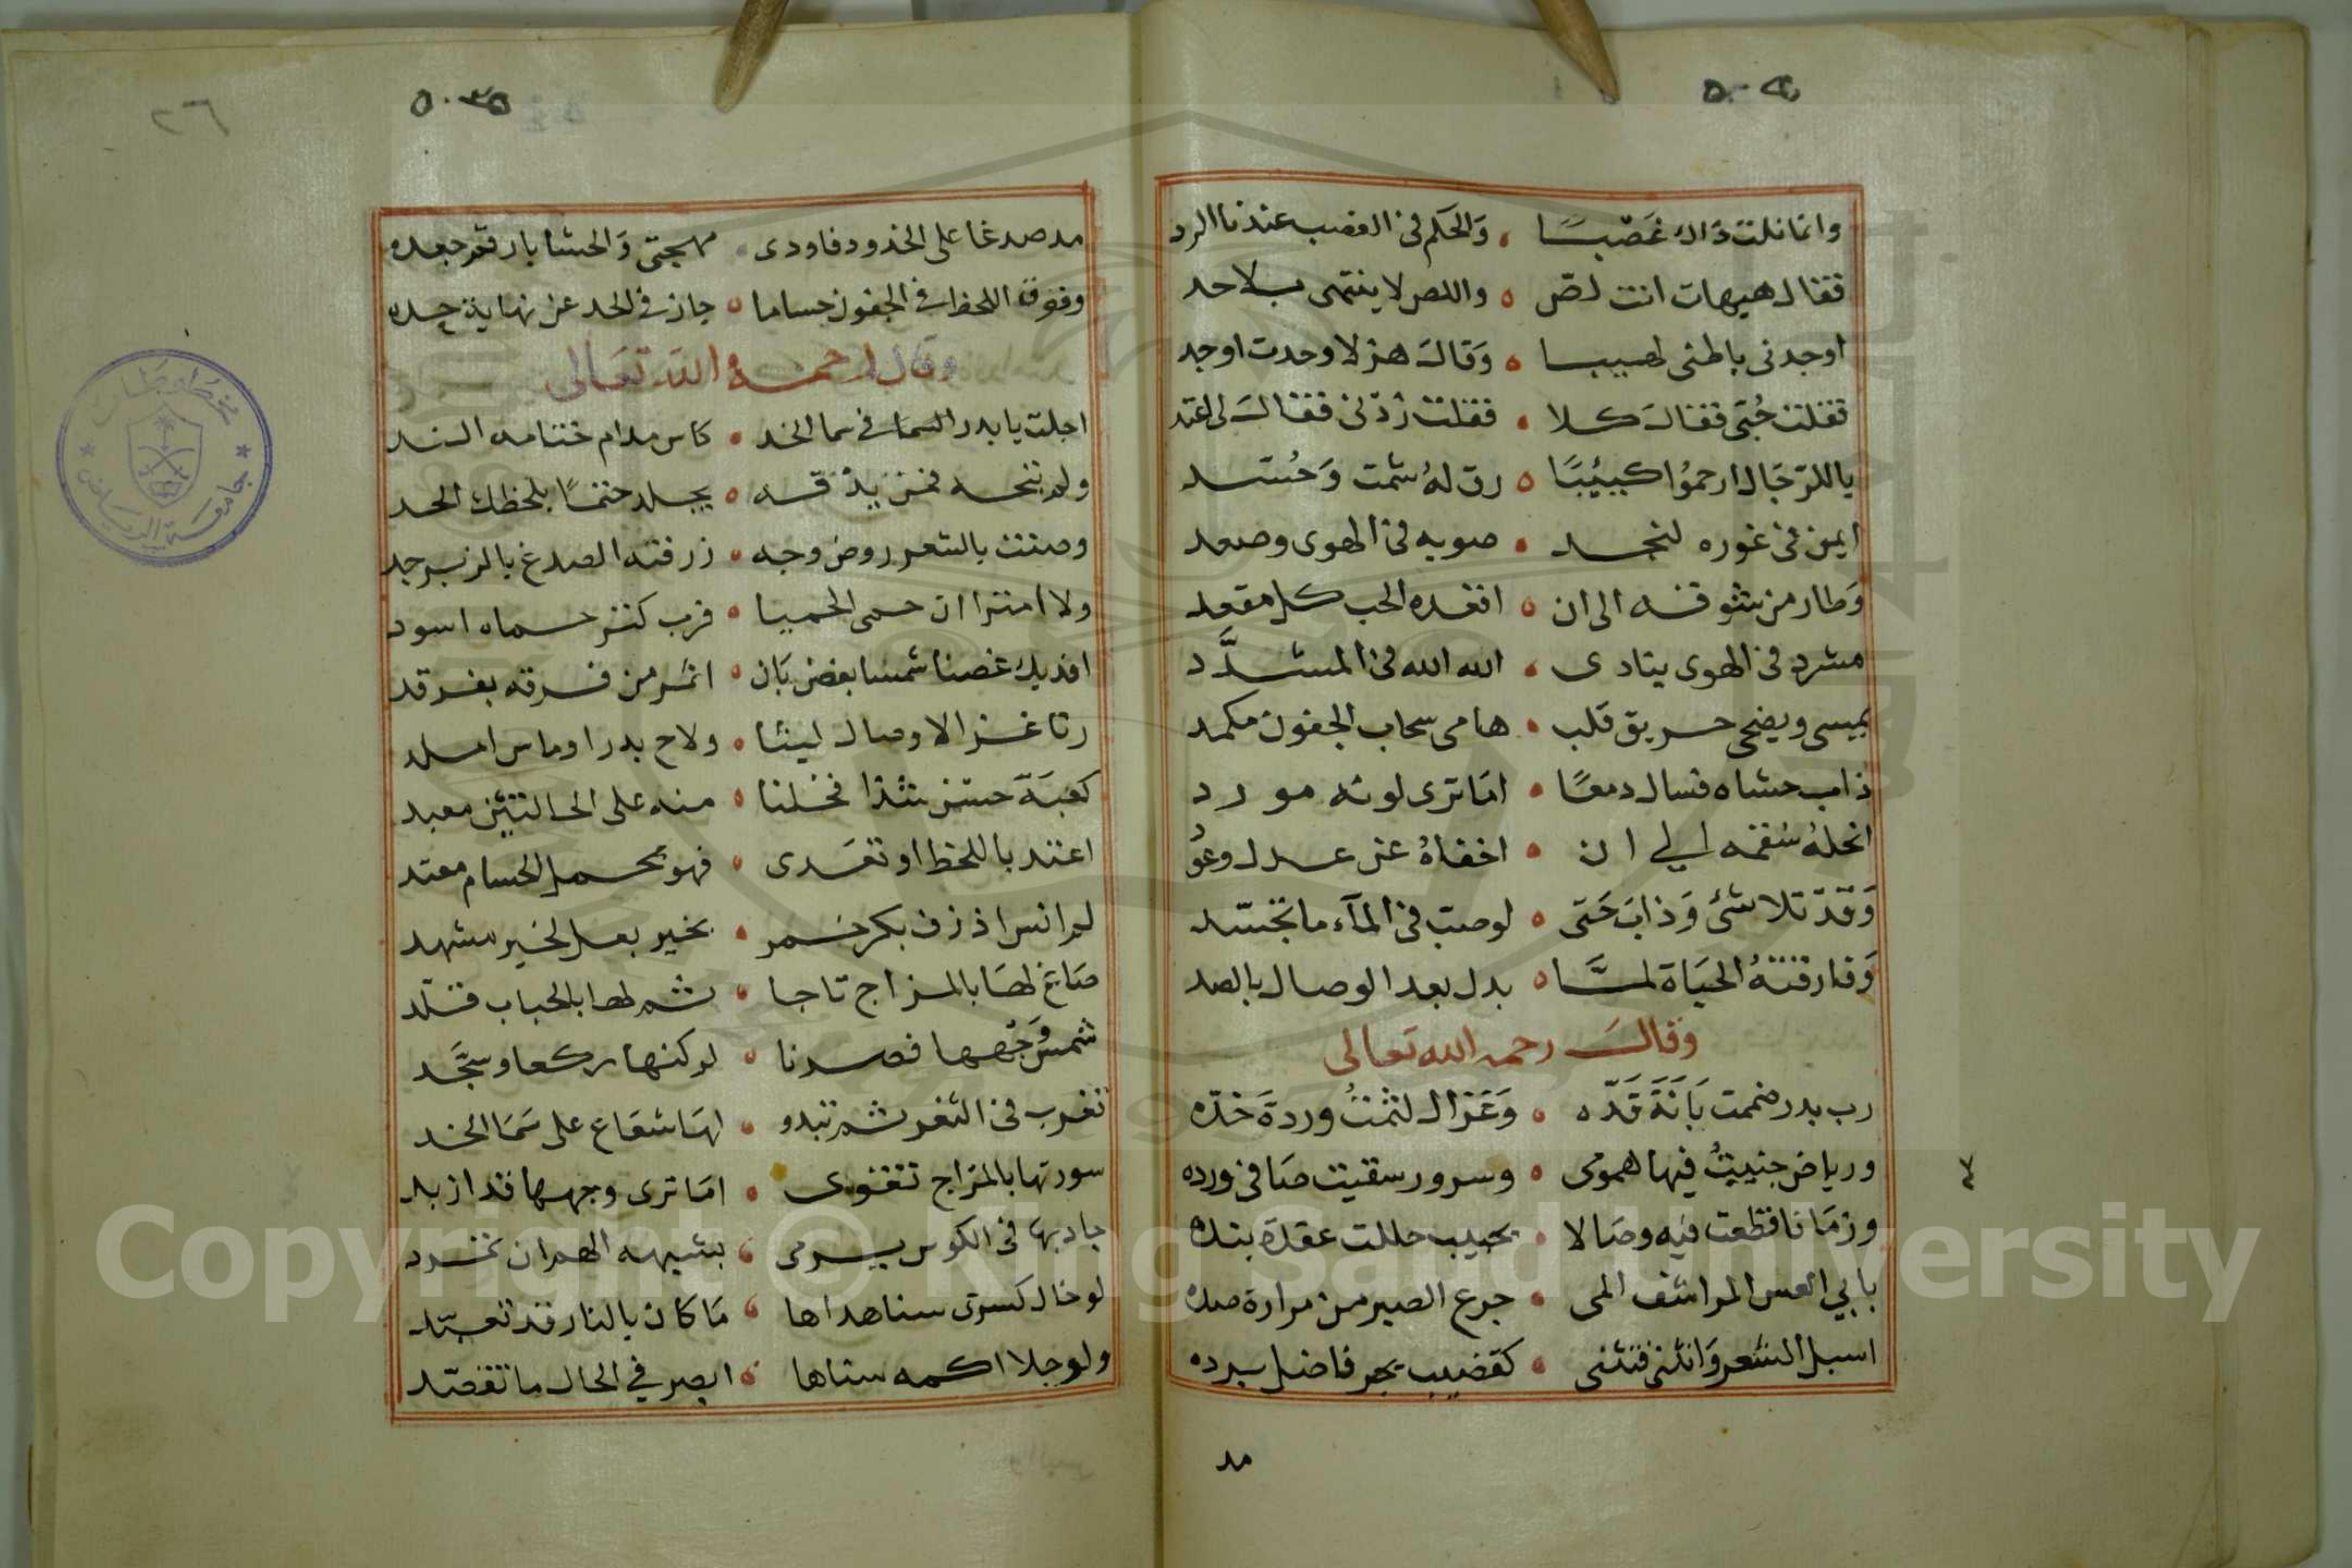 وانما نلت ذاك غصبا والحكم في الغصب عندنا الرد
فقال هيهات انت لص واللص لا ينتهى بلا حد
اوجدنى باطنى لهيبا وقال هزلا وحدت اوجد
فقلت جبتى فقال كلا فقلت زدنى فقال لى اعتد
ياللرجال ارحموا كييبا رق له شمت وحسد
ايمن فى غوره لنجد صوبه فى الهوى وصعد
وطار من شوقه الى ان اقعده الحب كل مقعد
مشرد فى الهوى ينادى الله الله فى المشرد
يمسى ويضحى حريق قلب هامى سحاب الجفون مكمد
ذاب حشاه فسال دمعا اما ترى لونه مورد
انحله سقمه الى ان اخفاه عن عذل وعو
وقد تلاشى وذاب حتى لو صب فى المآء ما تجسد
وفارقته الحياة لما بدل بعد الوصال بالصد
وقال رحمه الله تعالى
رب بدر ضممت بانة قده وغزال لثمت وردة خده
ورياض جنيت فيها همومى وسرور سقيت صافى ورده
وزمانا قطعت فيه وصالا بحبيب حللت عقدة بنده
بابي العس المراشف المى جرع الصبر من مرارة صده
اسبل الشعر وانثنى فتثنى كقضيب بجر فاضل برده
مد
٢٦
مد صدغا على الخدود فاودى مهجتى والحشا بارقم جعده
وفوق اللحظ فى الجفون حساما جاز فى الحد عن نهاية حده
وقال رحمه الله تعالى
اجلت يا بدر السما فى سما الخد كاس مدام ختامه الند
ولم تبحه فمن يذقه يجلد حتما بلحظك الحد
وصنت بالشعر روض وجه زرفنه الصدغ بالزبرجد
ولا امترا ان حمى الحميا فرب كنز حماه اسود
افديك غصنا شمسا بغض بان اثمر من فرقه بفرقد
رنا غزالا وصال ليثا ولاح بدرا وماس املد
كعبة حسن شذا فخلنا منه على الحالتين معبد
اعتد باللحظ او تعدى فهو بحمل الحسام معتد
لم انس اذ زف بكر خمر بخير بعل لخير مشهد
صاغ لها بالمزاج تاجا ثم لها بالحباب قلد
شمس وجهها قصدنا لو كنها ركعا وسجد
تغرب فى الثغر ثم تبدو لها شعاع على سما الخد
سورتها بالمزاج تقوى اما ترى وجهها قد ازبد
جاد بها فى الكوس يرمى بشبهه الهم ان تمرد
لو خال كسرى سنا هداها ما كان بالنار قد تعبد
ولو جلا اكمه سناها ابصر في الحال ما تقصد
جامعة الرياض
Copyright © King Saud University